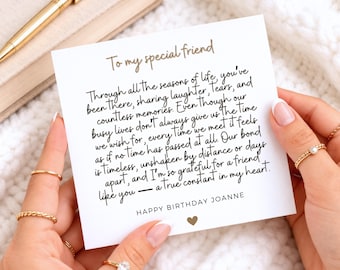 To my special friend
Through all the seasons of life, you've
been there, sharing laughter, tears, and
countless memories. Even though our
busy lives don't always give us the time
we wish for, every time we meet it feels
as if no time has passed at all. Our bond
is timeless, unshaken by distance or days
apart, and I'm so grateful for a friend
like you — a true constant in my heart.
HAPPY BIRTHDAY JOANNE